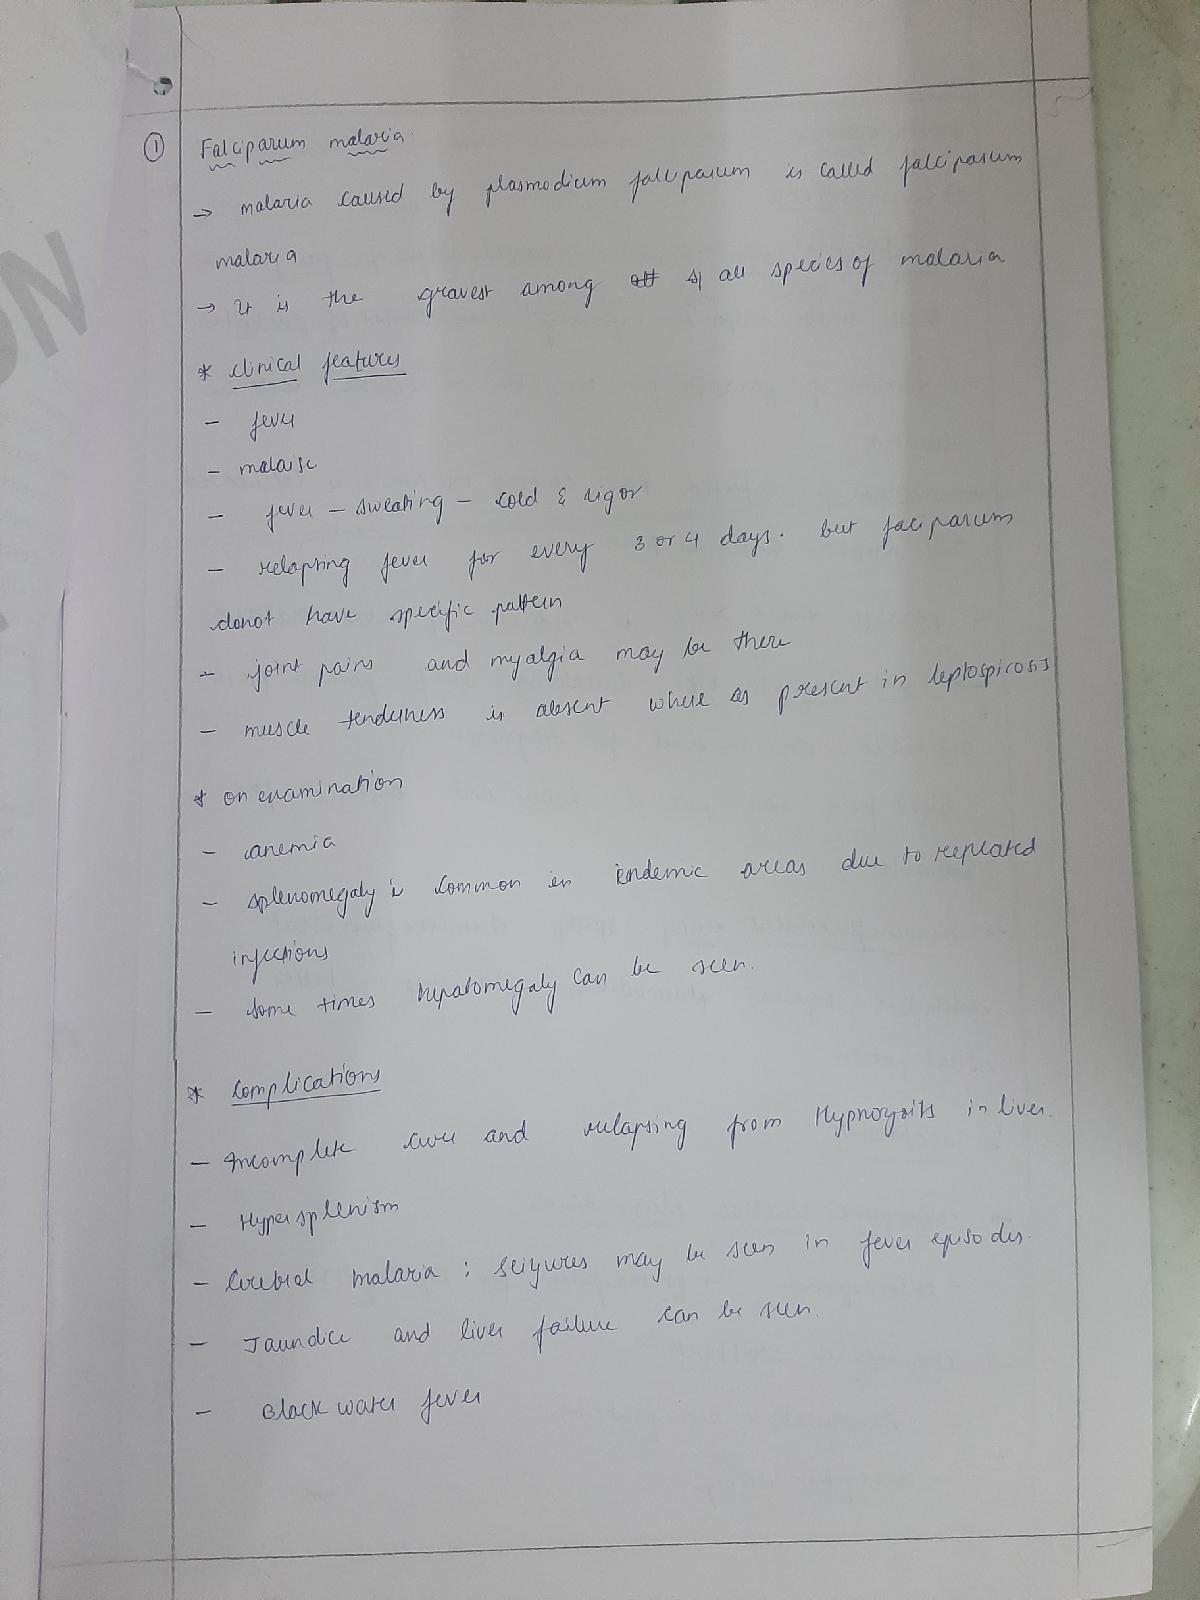 ① Falciparum malaria.
→ malaria caused by plasmodium falciparum is called falciparum
malaria
→ It is the gravest among of all species of malaria
* clinical features
- fever
- malaise
- fever - sweating - cold & rigor
- relapsing fever for every 3 or 4 days. but faciparum
donot have specific pattern
- joint pains and myalgia may be there
- muscle tenderness is absent where as present in leptospirosis
* on examination
- anemia
- splenomegaly is common in Endemic areas due to repeated
infections
- some times hepatomegaly can be seen.
* Complications
- Incomplete cure and relapsing from Hypnozoits in liver.
- Hypersplenism
- Cerebral malaria : seizures may be seen in fever episodes.
- Jaundice and liver failure can be seen.
- Black water fever